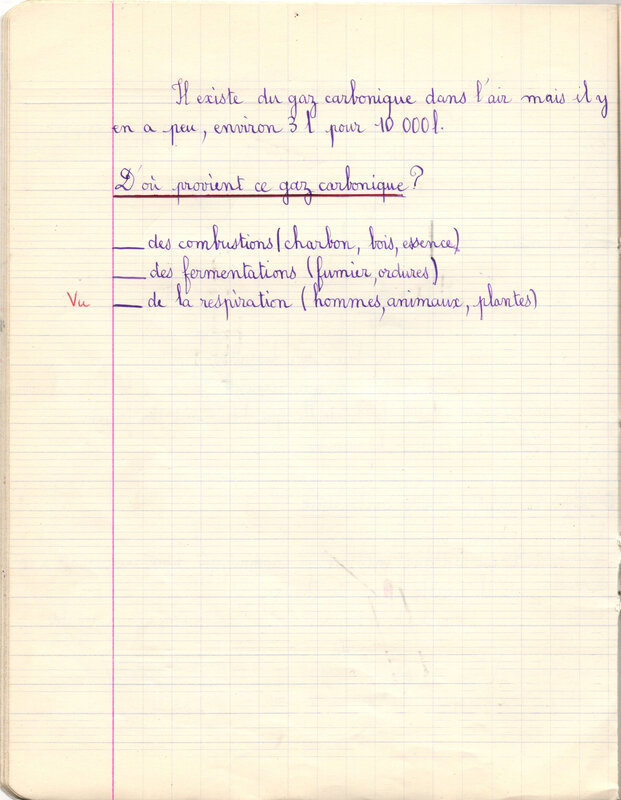 Il existe du gaz carbonique dans l'air mais il y
en a peu, environ 3 l pour 10 000 l.
D'où provient ce gaz carbonique ?
— des combustions (charbon, bois, essence)
— des fermentations (fumier, ordures)
Vu — de la respiration (hommes, animaux, plantes)